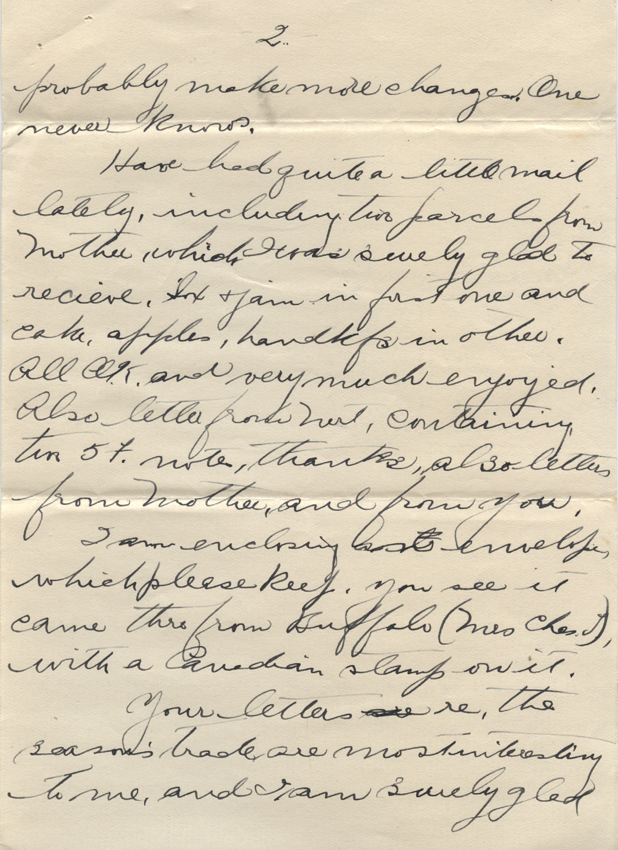 2.
probably make more changes. One
never knows.
Have had quite a little mail
lately, including two parcels from
Mother, which I was surely glad to
recieve, Sox & jam in first one and
cake, apples, handkfs in other.
All O.K. and very much enjoyed.
Also letter from Nert, containing
two 5f. notes, thanks, also letters
from Mother, and from you.
I am enclosing envelope,
which please keep. You see it
came thro from Buffalo (Mrs Chas. J),
with a Canadian stamp on it.
Your letters re, the
season's trade, are most interesting
to me, and I am surely glad